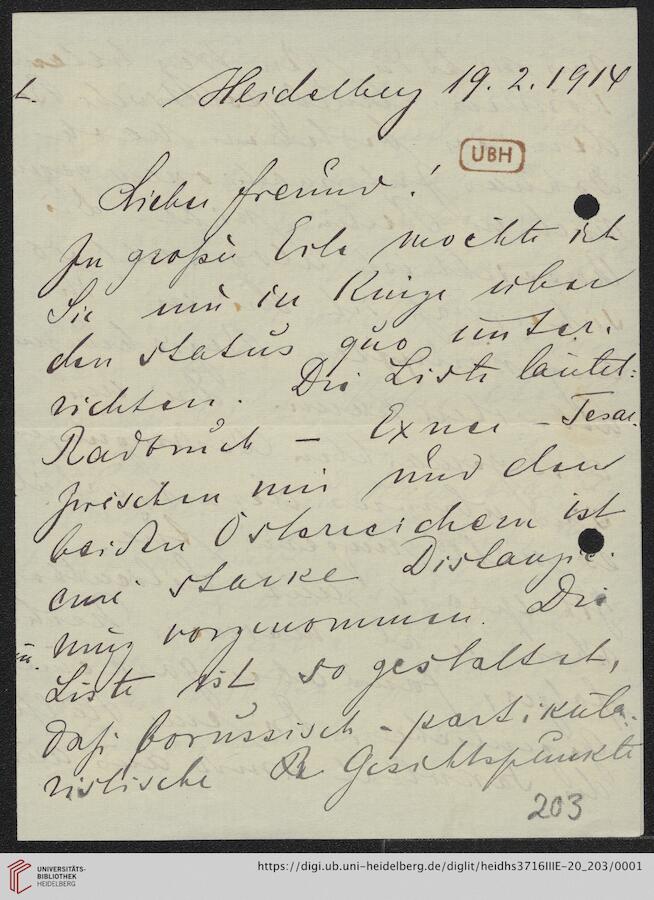 Heidelberg 19. 2. 1914
UBH
Lieber Freund!
In großer Eile möchte ich
Sie nur in Kürze über
den status quo unter-
richten. Die Liste lautet:
Radbruch – Exner – Tesar.
Zwischen mir und den
beiden Österreichern ist
eine starke Distanzie-
rung vorgenommen. Die
Liste ist so gestaltet,
daß borussisch-partikula-
ristische Gesichtspunkte
203
UNIVERSITÄTS-
BIBLIOTHEK
HEIDELBERG
https://digi.ub.uni-heidelberg.de/diglit/heidhs3716IIIE-20_203/0001